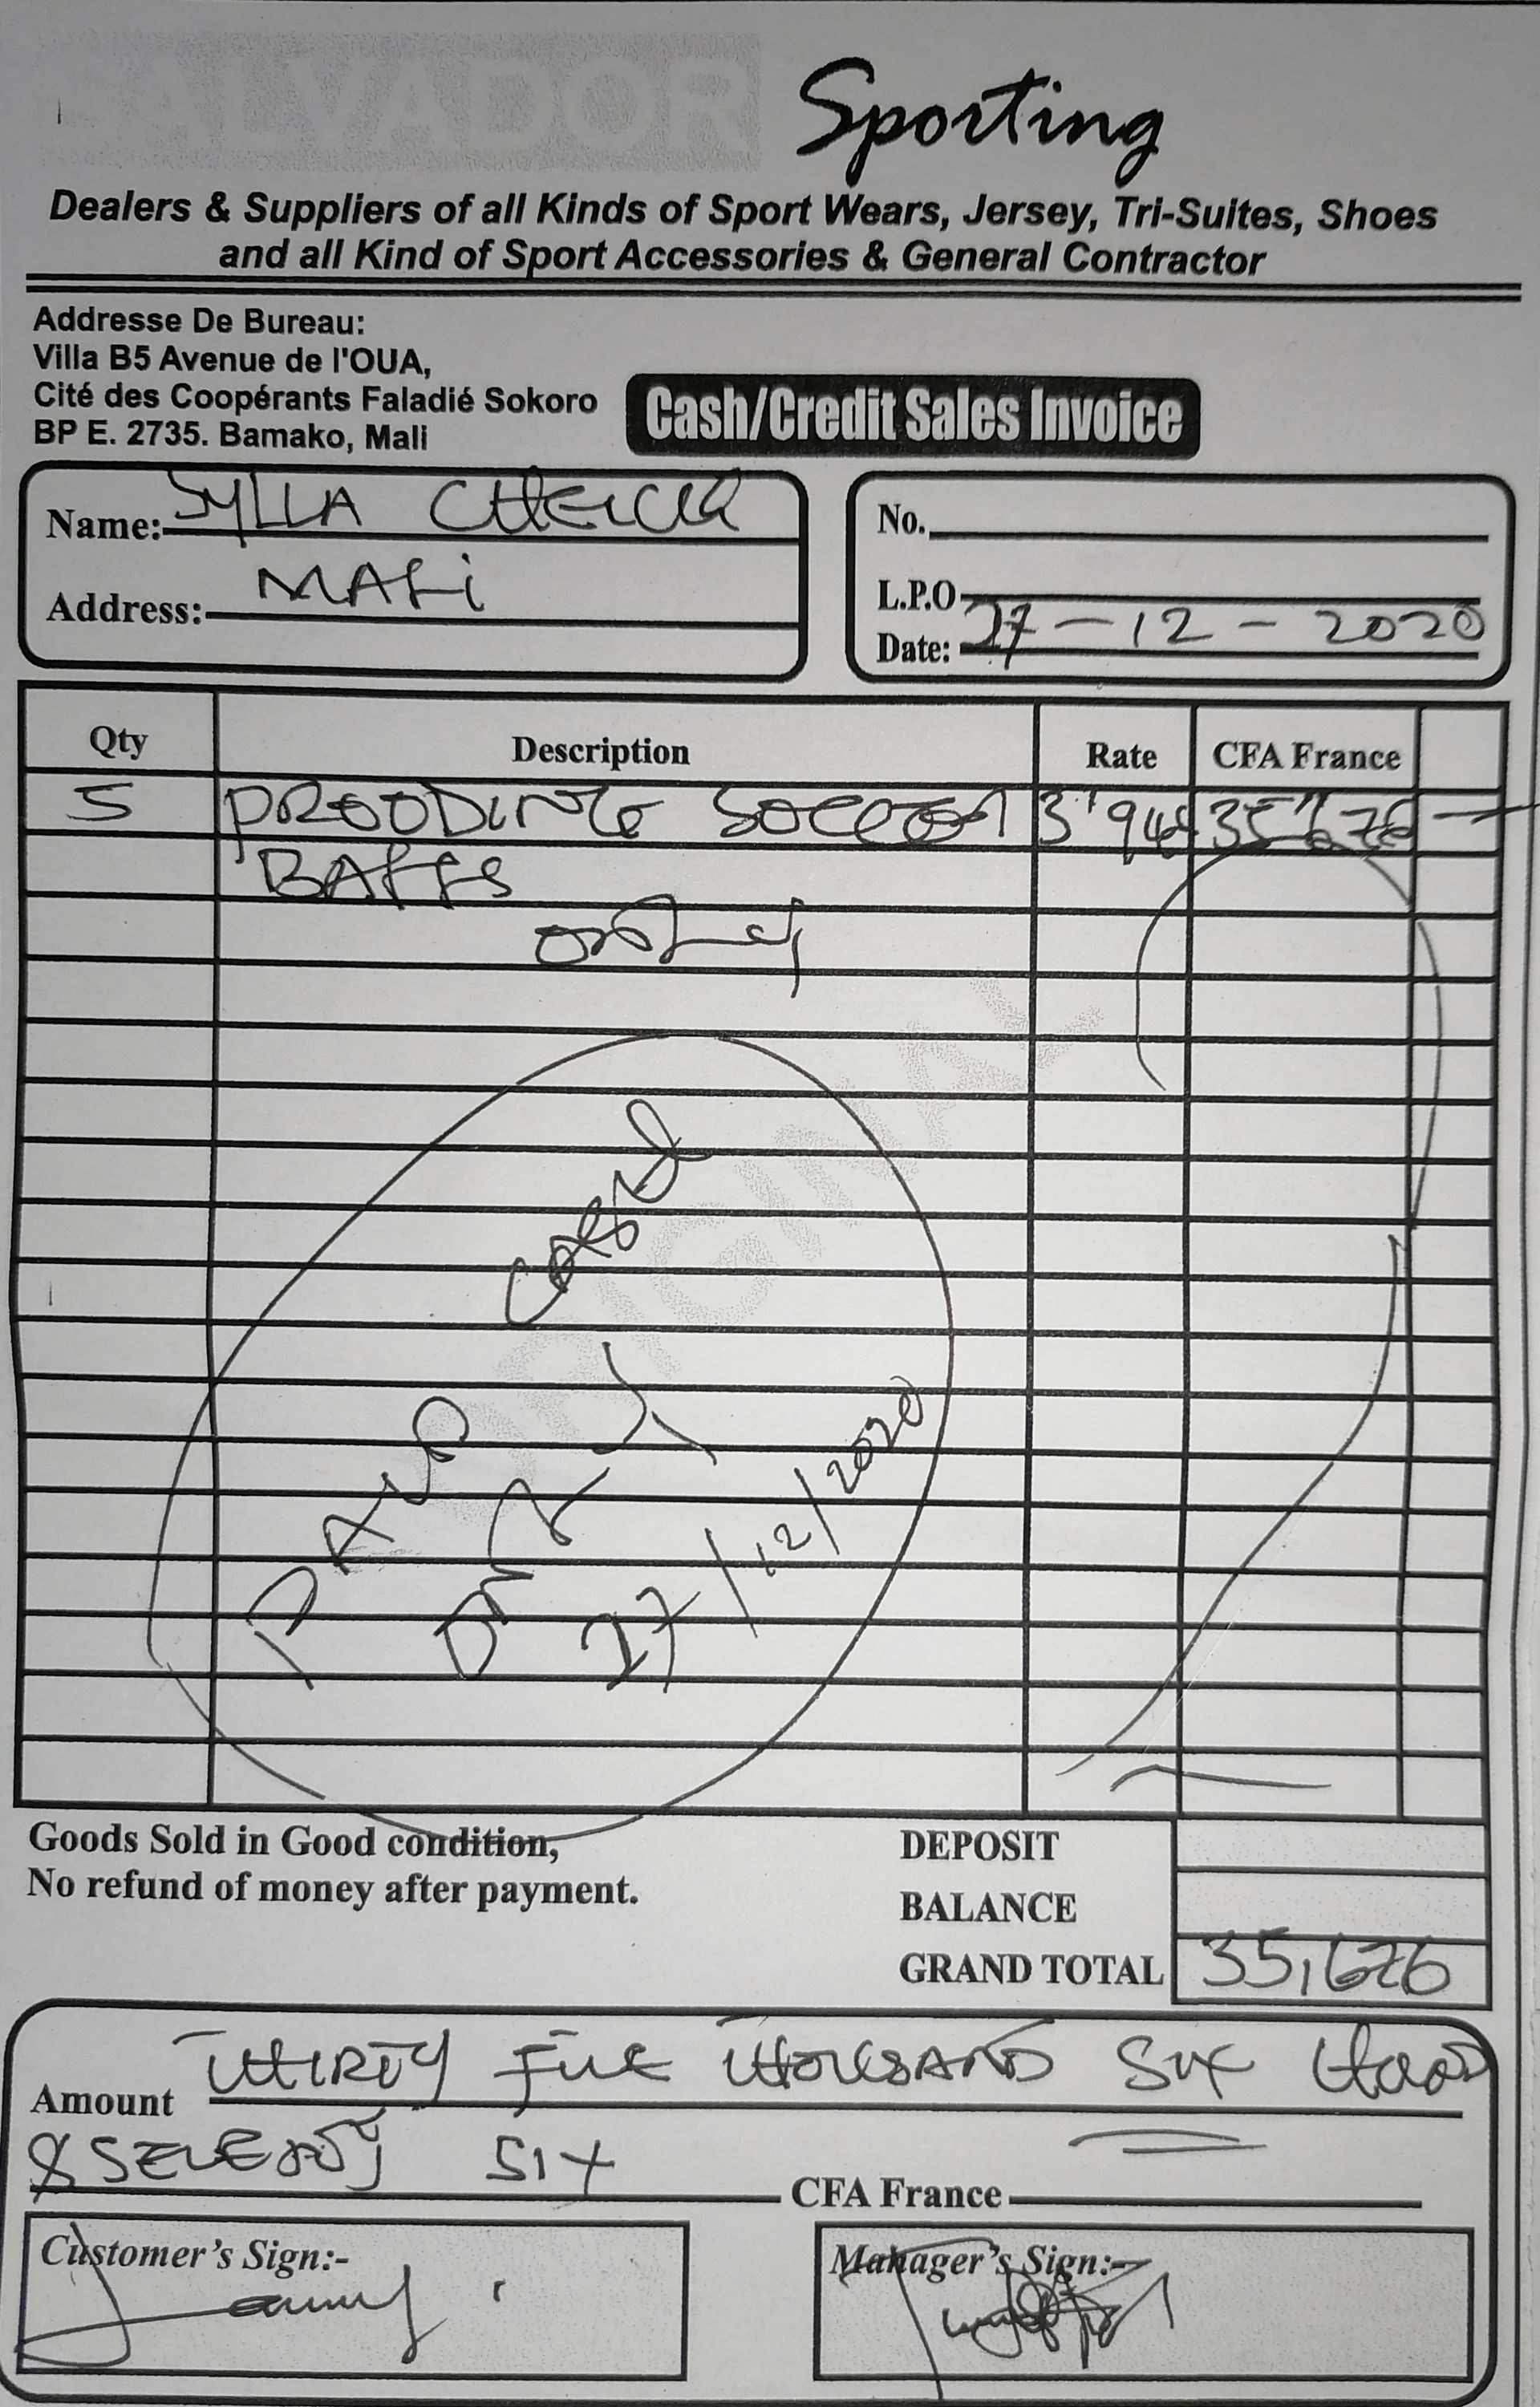 SALVADOR Sporting
Dealers & Suppliers of all Kinds of Sport Wears, Jersey, Tri-Suites, Shoes
and all Kind of Sport Accessories & General Contractor
Addresse De Bureau:
Villa B5 Avenue de l'OUA,
Cité des Coopérants Faladié Sokoro
BP E. 2735. Bamako, Mali
Cash/Credit Sales Invoice
Name: SYLLA CHEICK
Address: MALi
No.
L.P.O
Date: 27-12-2020
Qty Description Rate CFA France
5 SOCCER 35,676
BALLS
ONLY
PAID CASH
ONLY
27/12/2020
Goods Sold in Good condition,
No refund of money after payment.
DEPOSIT
BALANCE
GRAND TOTAL 35,676
Amount THIRTY FIVE THOUSAND SIX
& SEVENTY SIX
CFA France
Customer's Sign:-
Manager's Sign:-